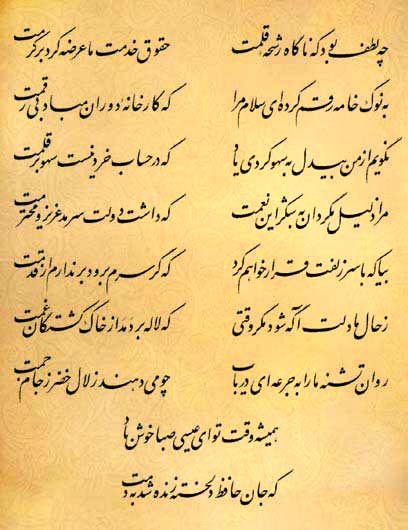 چه لطف بود که ناگاه رشحهٔ قلمت حقوق خدمت ما عرضه کرد بر کرمت
به نوک خامه رقم کرده‌ای سلام مرا که کارخانهٔ دوران مباد بی رقمت
نگویم از من بیدل به سهو کردی یاد که در حساب خرد نیست سهو بر قلمت
مرا ذلیل مگردان به شکر این نعمت که داشت دولت سرمد عزیز و محترمت
بیا که با سر زلفت قرار خواهم کرد که گر سرم برود برندارم از قدمت
ز حال ما دلت آگه شود مگر وقتی که لاله بردمد از خاک کشتگان غمت
روان تشنه ما را به جرعه‌ای دریاب چو می دهند زلال خضر ز جام جمت
همیشه وقت تو ای عیسی صبا خوش باد
که جان حافظ دلخسته زنده شد به دمت